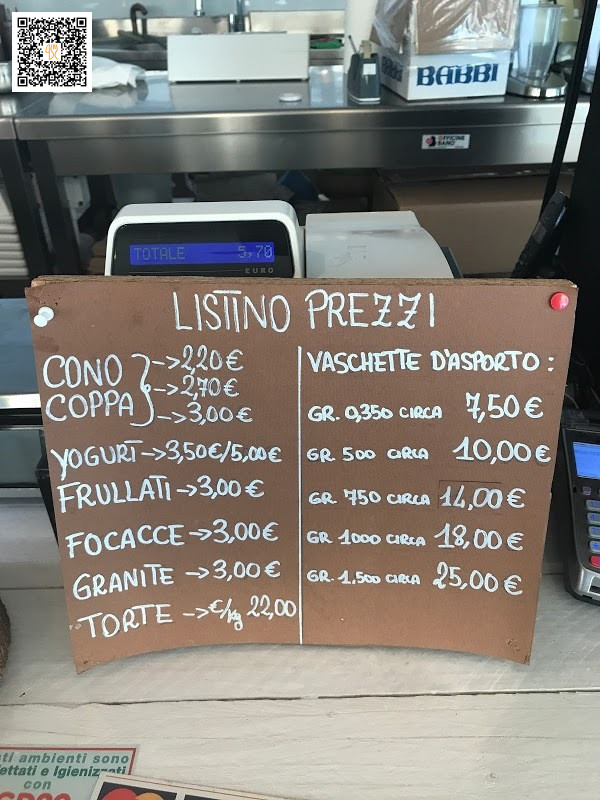 BABBI
OFFICINE
BANO
TOTALE 5,70
EURO
LISTINO PREZZI
CONO
COPPA
->2,20€
->2,70€
->3,00€
YOGURT->3,50€/5,00€
FRULLATI->3,00€
FOCACCE->3,00€
GRANITE->3,00€
TORTE->€/Kg 22,00
VASCHETTE D'ASPORTO:
GR. 0,350 CIRCA 7,50€
GR. 500 CIRCA 10,00€
GR. 750 CIRCA 14,00€
GR. 1000 CIRCA 18,00€
GR. 1.500 CIRCA 25,00€
sti ambienti sono
fettati e Igienizzati
con